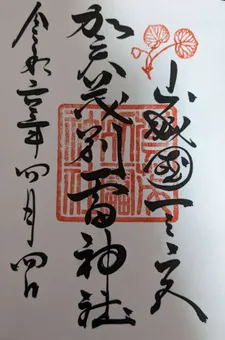 山城國一之宮
賀茂別雷神社
令和六年四月四日